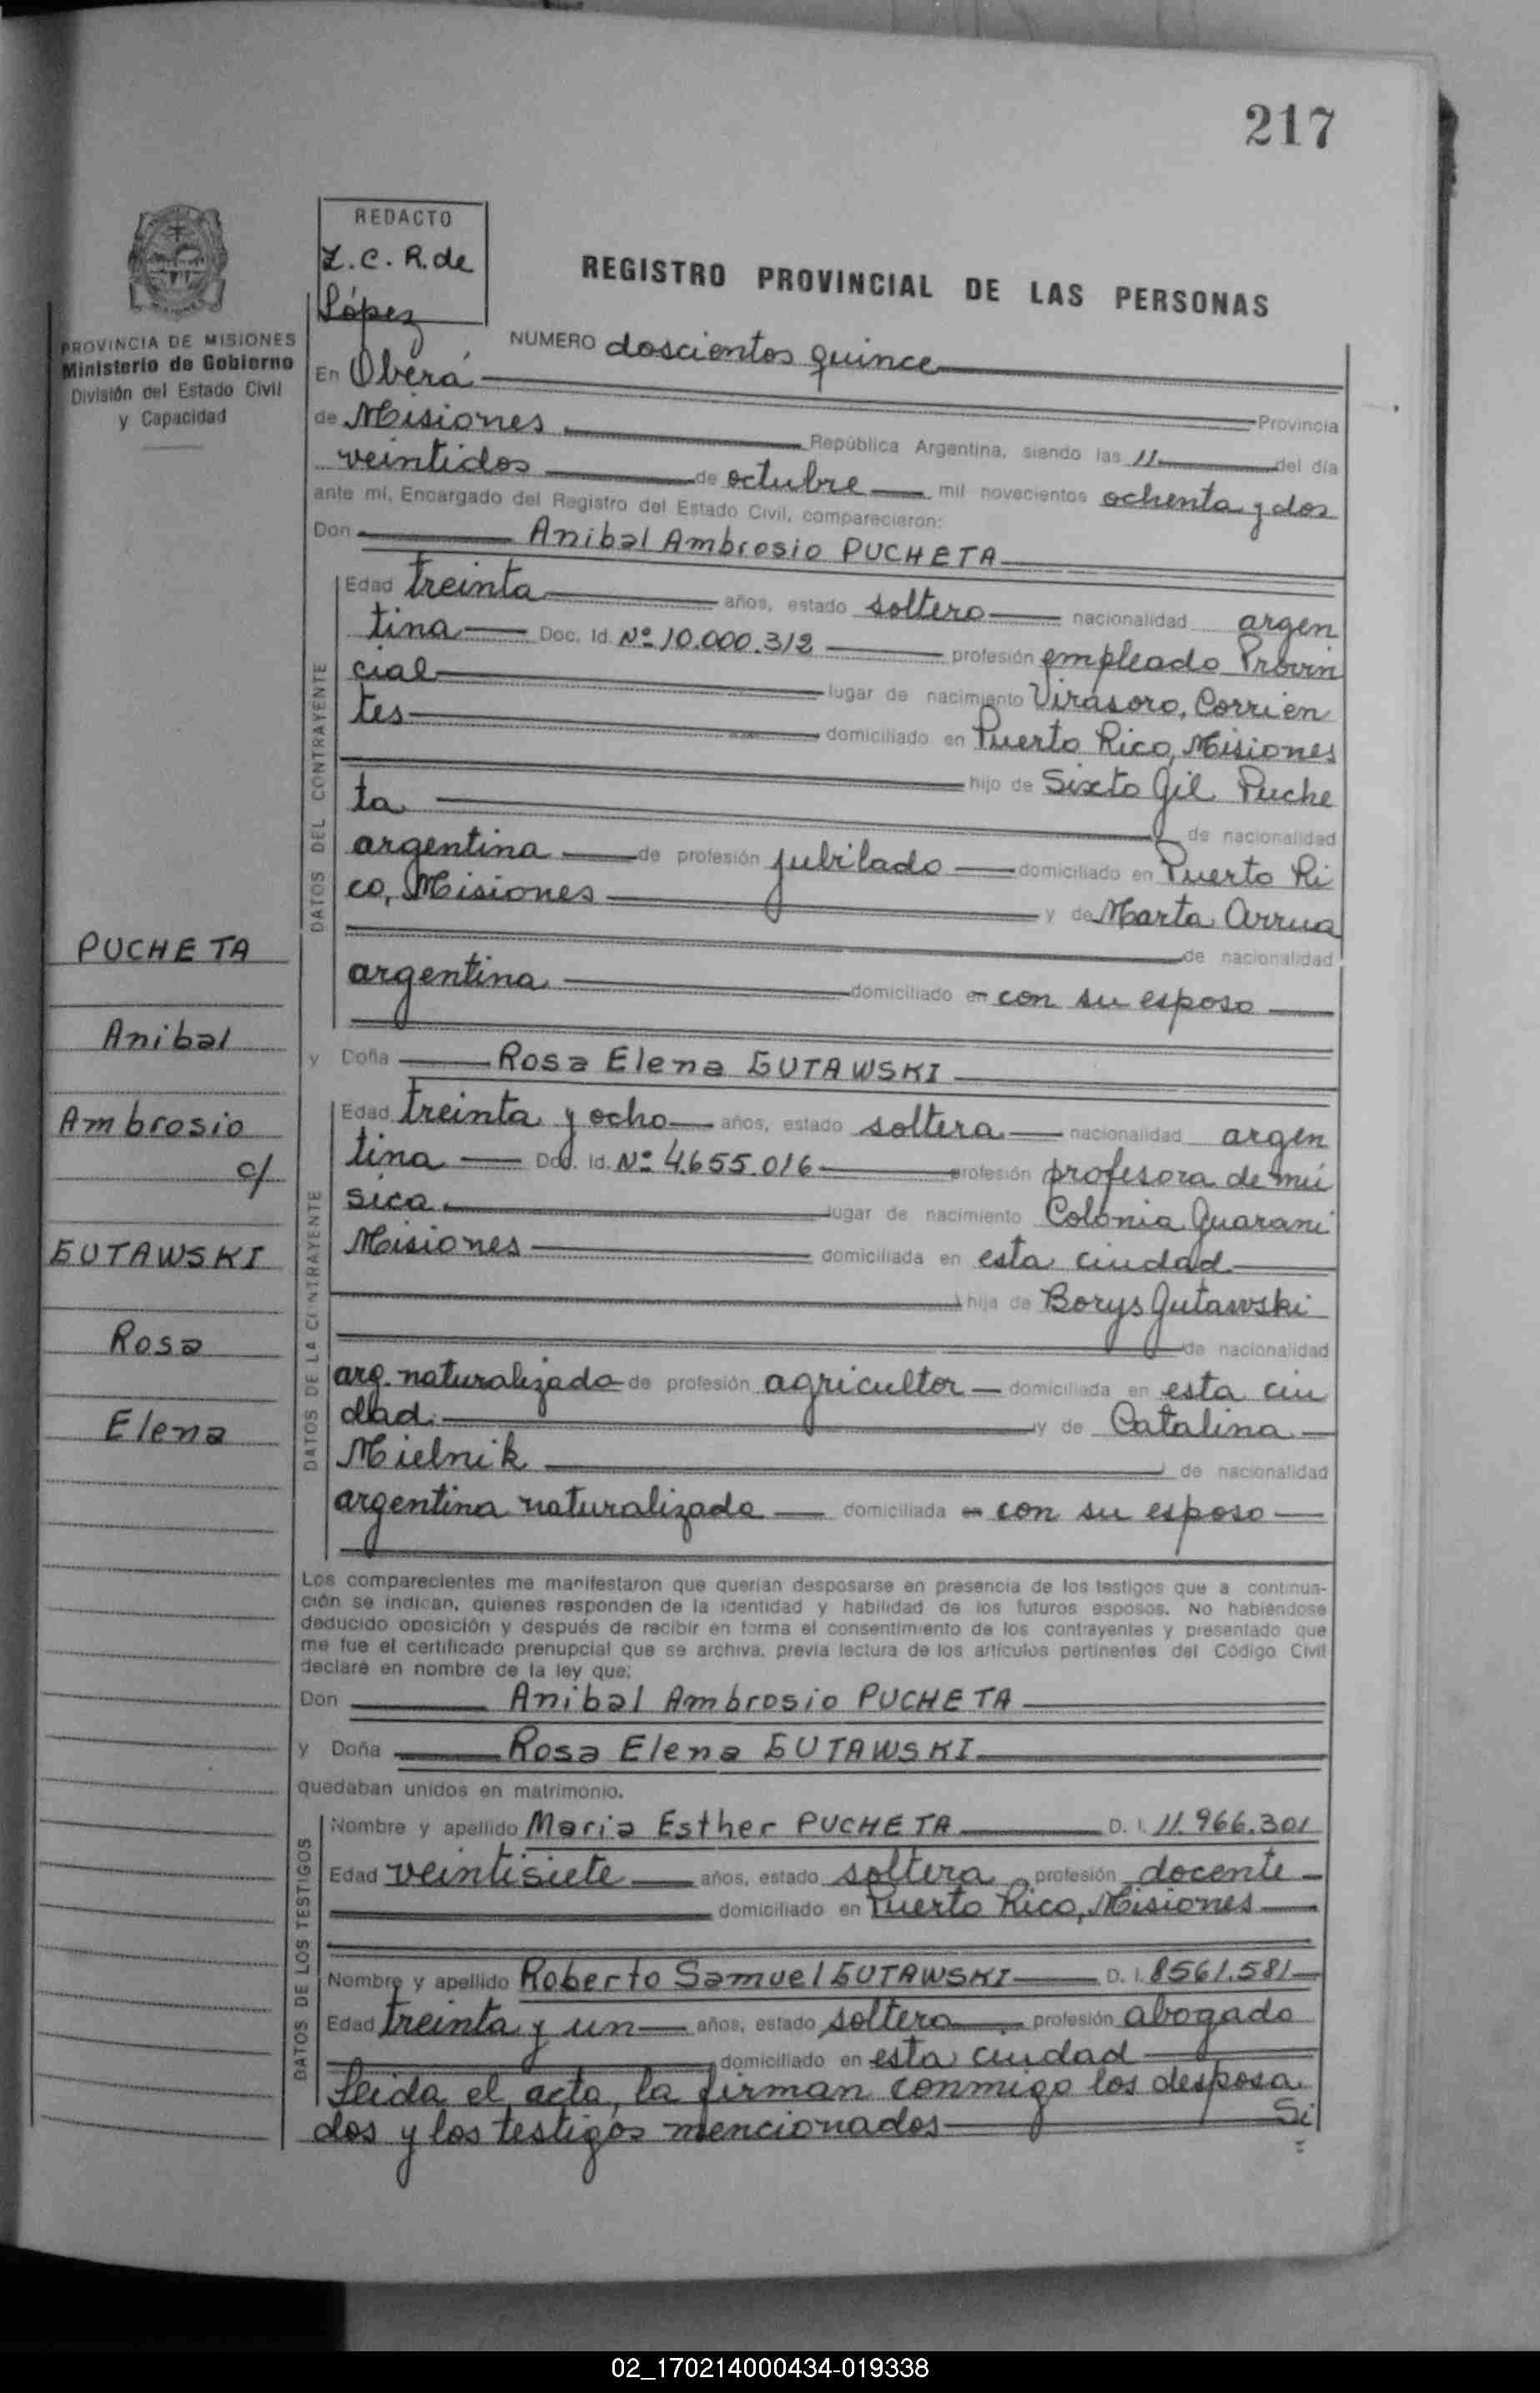 217
REDACTO
Z. C. R. de
López
REGISTRO PROVINCIAL DE LAS PERSONAS
PROVINCIA DE MISIONES
Ministerio de Gobierno
División del Estado Civil
y Capacidad
NUMERO doscientos quince
En Oberá
Provincia
de Misiones República Argentina, siendo las 11 del día
veintidos de octubre mil novecientos ochenta y dos
ante mí, Encargado del Registro del Estado Civil, comparecieron:
Don Anibal Ambrosio PUCHETA
DATOS DEL CONTRAYENTE
Edad treinta años, estado soltero nacionalidad argen
tina Doc. Id. Nº 10.000.312 profesión empleado Provin
cial lugar de nacimiento Virasoro, Corrien
tes domiciliado en Puerto Rico, Misiones
hijo de Sixto Gil Puche
ta de nacionalidad
argentina de profesión jubilado domiciliado en Puerto Ri
co, Misiones y de Marta Arrua
de nacionalidad
argentina domiciliado en con su esposo
y Doña Rosa Elena GUTAWSKI
DATOS DE LA CONTRAYENTE
Edad treinta y ocho años, estado soltera nacionalidad argen
tina Doc. Id. Nº 4.655.016 profesión profesora de mú
sica lugar de nacimiento Colonia Guarani
Misiones domiciliada en esta ciudad
hija de Borys Gutawski
de nacionalidad
arg. naturalizado de profesión agricultor domiciliada en esta ciu
dad. y de Catalina
Mielnik de nacionalidad
argentina naturalizada domiciliada en con su esposo
PUCHETA
Anibal
Ambrosio
c/
GUTAWSKI
Rosa
Elena
Los comparecientes me manifestaron que querían desposarse en presencia de los testigos que a continua-
ción se indican, quienes responden de la identidad y habilidad de los futuros esposos. No habiéndose
deducido oposición y después de recibir en forma el consentimiento de los contrayentes y presentado que
me fue el certificado prenupcial que se archiva, previa lectura de los artículos pertinentes del Código Civil
declaré en nombre de la ley que:
Don Anibal Ambrosio PUCHETA
y Doña Rosa Elena GUTAWSKI
quedaban unidos en matrimonio.
DATOS DE LOS TESTIGOS
Nombre y apellido Maria Esther PUCHETA D. I. 11.966.301
Edad veintisiete años, estado soltera profesión docente
domiciliado en Puerto Rico, Misiones
Nombre y apellido Roberto Samuel GUTAWSKI D. I. 8561.581
Edad treinta y un años, estado soltero profesión abogado
domiciliado en esta ciudad
Leida el acta, la firman conmigo los desposa
dos y los testigos mencionados Si
02_170214000434-019338